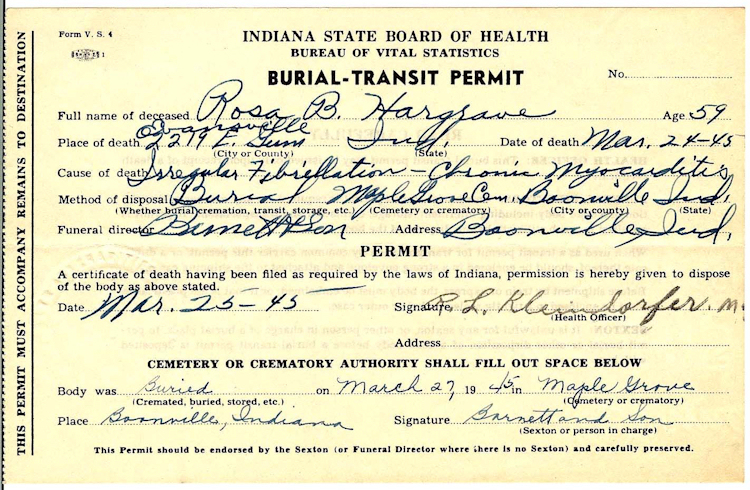 Form V. S. 4
INDIANA STATE BOARD OF HEALTH
BUREAU OF VITAL STATISTICS
BURIAL-TRANSIT PERMIT
No.
Full name of deceased Rosa B. Hargrave Age 59
Evansville
Place of death 2219 E. Gum Ind. Date of death Mar. 24-45
(City or County) (State)
Cause of death Irregular Fibrillation - Chronic Myocarditis
Method of disposal Burial Maple Grove Cem. Boonville Ind.
(Whether burial, cremation, transit, storage, etc.) (Cemetery or crematory) (City or county) (State)
Funeral director Barnett & Son Address Boonville, Ind.
PERMIT
A certificate of death having been filed as required by the laws of Indiana, permission is hereby given to dispose
of the body as above stated.
Date Mar. 25-45 Signature R. L. Kleindorfer. M.
(Health Officer)
Address
CEMETERY OR CREMATORY AUTHORITY SHALL FILL OUT SPACE BELOW
Body was Buried on March 27, 1945 in Maple Grove
(Cremated, buried, stored, etc.) (Cemetery or crematory)
Place Boonville, Indiana Signature Barnett and Son
(Sexton or person in charge)
This Permit should be endorsed by the Sexton (or Funeral Director where there is no Sexton) and carefully preserved.
THIS PERMIT MUST ACCOMPANY REMAINS TO DESTINATION